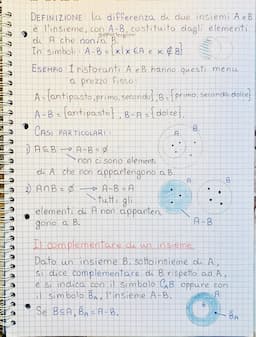 DEFINIZIONE: la differenza di due insiemi A e B
è l'insieme, con A-B, costituito dagli elementi
di A che non B.
In simboli: A-B = {x|x ∈ A e x ∉ B}
ESEMPIO: I ristoranti A e B hanno questi menu
a prezzo fisso:
A={antipasto, primo, secondo}, B={primo, secondo, dolce}
A-B = {antipasto}, B-A = {dolce}.
CASI PARTICOLARI:
A B
1) A⊆B → A-B = ∅
non ci sono elementi
di A che non appartengono a B.
2) A∩B = ∅ → A-B = A
A B
tutti gli
elementi di A non apparten
gono a B.
A-B
Il complementare di un insieme
Dato un insieme B, sottoinsieme di A,
si dice complementare di B rispetto ad A,
e si indica con il simbolo CAB oppure con
il simbolo B̄A, l'insieme A-B.
A
Se B⊆A, B̄A = A-B.
B̄A